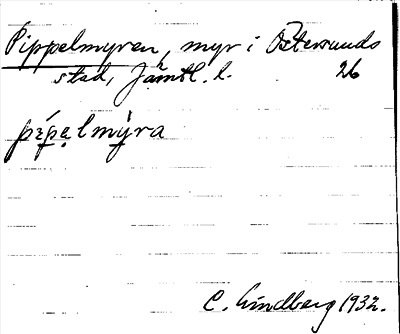 Pippelmyren, myr i Östersunds
stad, Jämtl. l. 26
pípelmýra
C. Lindberg 1932.